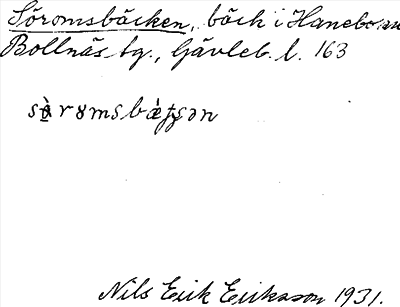 Söromsbäcken, bäck i Hanebo sn
Bollnäs tg., Gävleb. l. 163
Nils Erik Eriksson 1931.